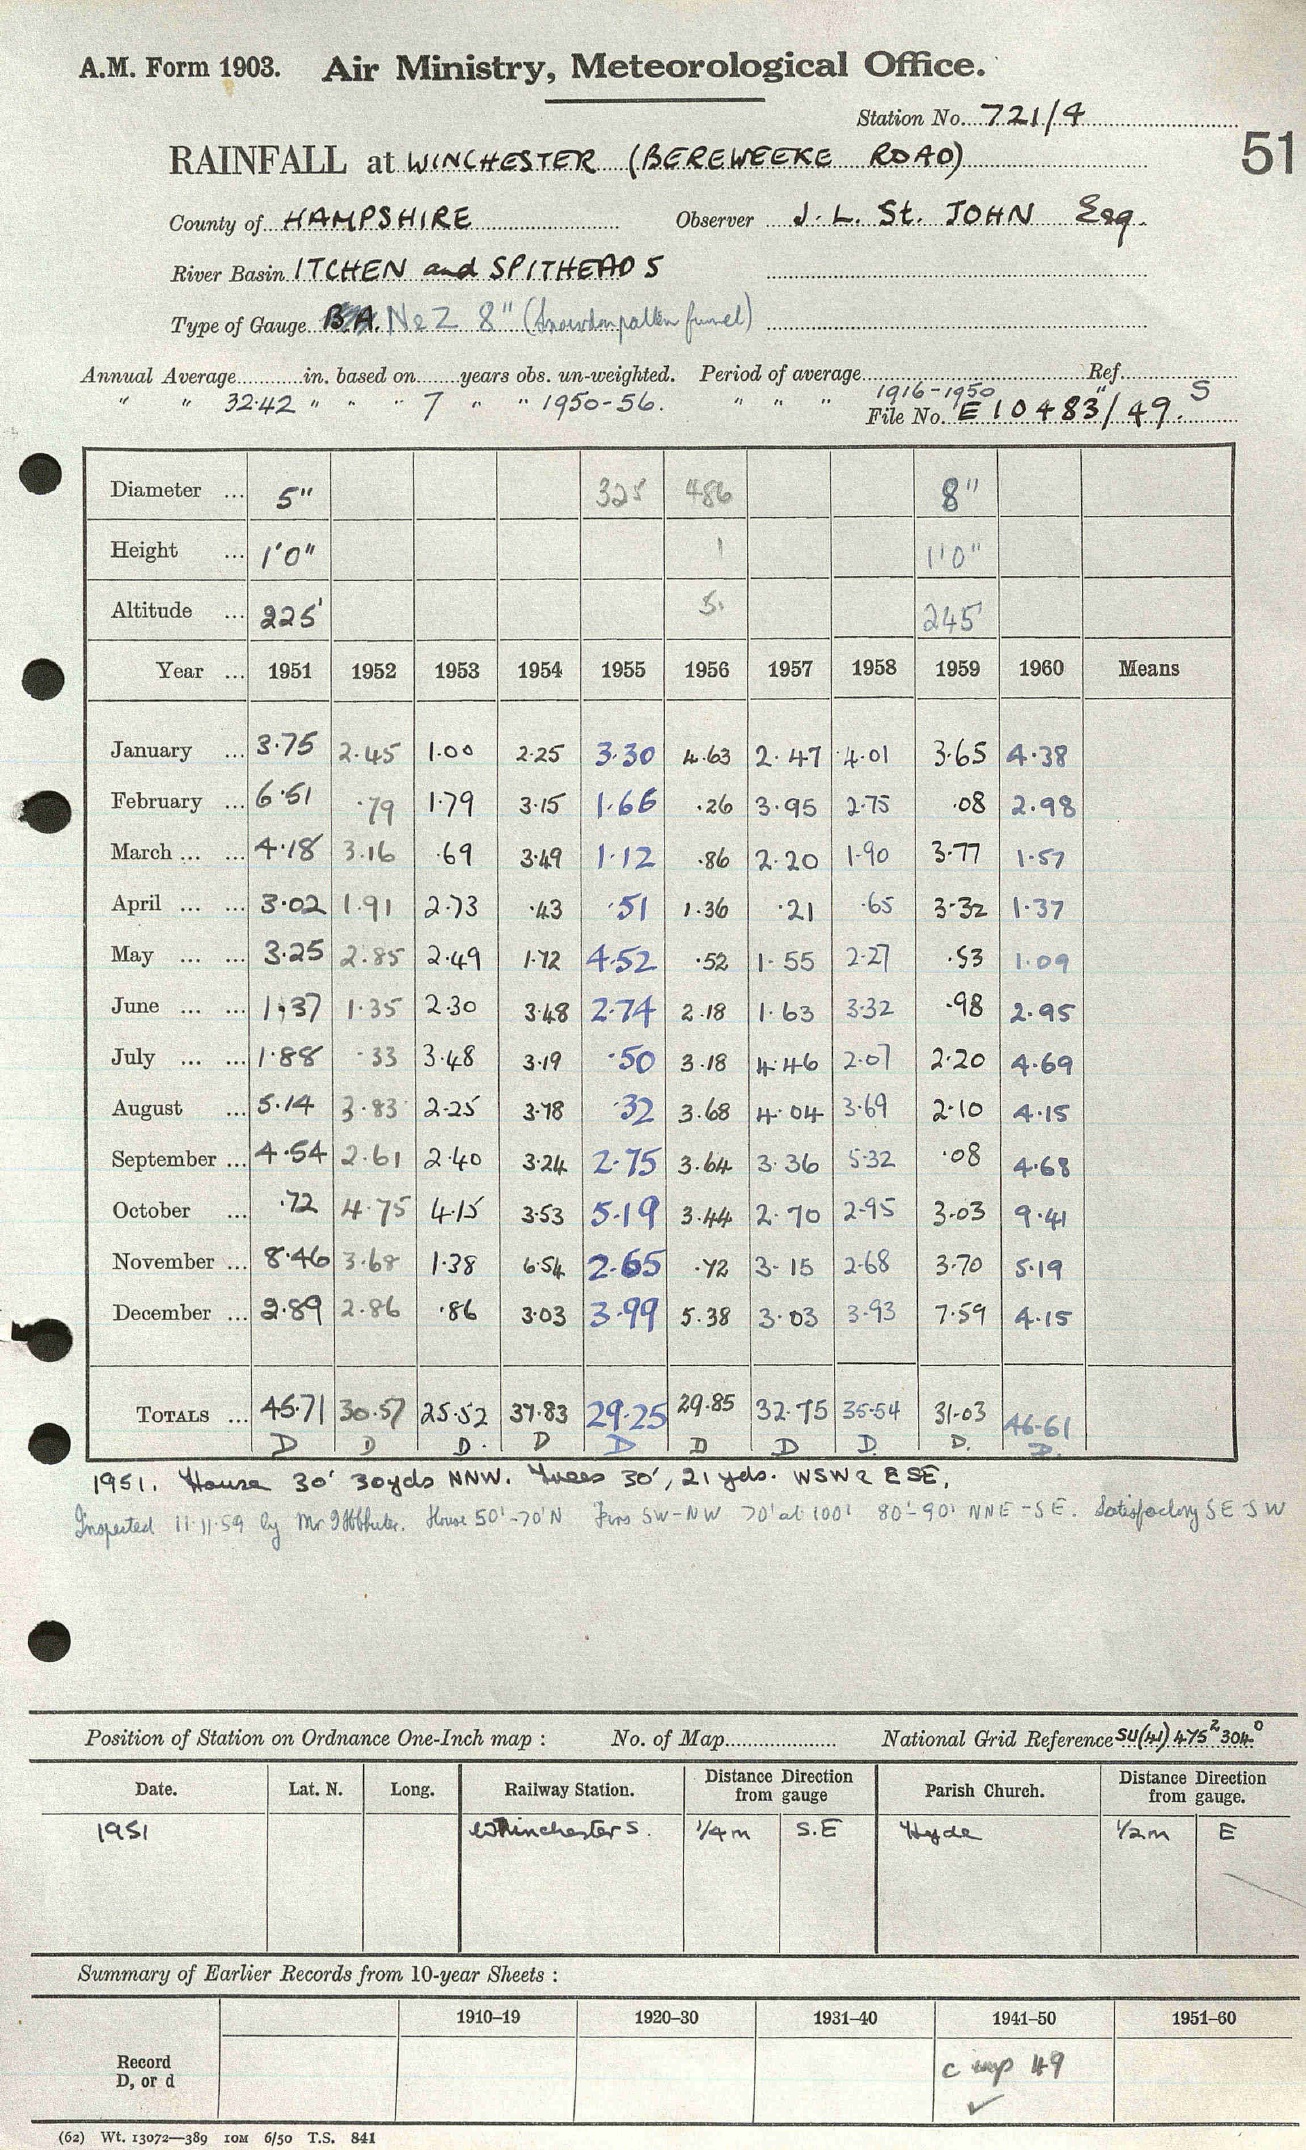 A.M. Form 1903. Air Ministry, Meteorological Office.
Station No. 721/4
51
RAINFALL at WINCHESTER (BEREWEEKE ROAD)
County of HAMPSHIRE Observer J. L. St. JOHN Esq.
River Basin ITCHEN and SPITHEAD 5
Type of Gauge 8" (Snowdon pattern funnel)
Annual Average in. based on years obs. un-weighted. Period of average Ref.
" " 32.42 " " " 7 " " 1950-56. " " " 1916-1950 " S
File No. E 10483/49.
Diameter ... 5" 325 486 8"
Height ... 1'0" 1 1'0"
Altitude ... 225' 5. 245'
Year ... 1951 1952 1953 1954 1955 1956 1957 1958 1959 1960 Means
January ... 3.75 2.45 1.00 2.25 3.30 4.63 2.47 4.01 3.65 4.38
February ... 6.51 .79 1.79 3.15 1.66 .26 3.95 2.75 .08 2.98
March ... ... 4.18 3.16 .69 3.49 1.12 .86 2.20 1.90 3.77 1.57
April ... ... 3.02 1.91 2.73 .43 .51 1.36 .21 .65 3.32 1.37
May ... ... 3.25 2.85 2.49 1.72 4.52 .52 1.55 2.27 .53 1.09
June ... ... 1.37 1.35 2.30 3.48 2.74 2.18 1.63 3.32 .98 2.95
July ... ... 1.88 .33 3.48 3.19 .50 3.18 4.46 2.07 2.20 4.69
August ... 5.14 3.83 2.25 3.78 .32 3.68 4.04 3.69 2.10 4.15
September ... 4.54 2.61 2.40 3.24 2.75 3.64 3.36 5.32 .08 4.68
October ... .72 4.75 4.15 3.53 5.19 3.44 2.70 2.95 3.03 9.41
November ... 8.46 3.68 1.38 6.54 2.65 .72 3.15 2.68 3.70 5.19
December ... 2.89 2.86 .86 3.03 3.99 5.38 3.03 3.93 7.59 4.15
TOTALS ... 45.71 30.57 25.52 37.83 29.25 29.85 32.75 35.54 31.03 46.61
D D D. D D D D D. D. D.
1951. House 30' 30yds NNW. Trees 30', 21 yds. WSW & ESE.
Inspected 11.11.59 by Mr House 50'-70'N Firs SW-NW 70' at 100' 80'-90' NNE-SE. Satisfactory SE SW
Position of Station on Ordnance One-Inch map : No. of Map National Grid Reference SU(41) 475² 304⁰
Date. Lat. N. Long. Railway Station. Distance from gauge Direction Parish Church. Distance from gauge. Direction
1951 Winchester S. 1/4 m S.E Hyde 1/2 m E
Summary of Earlier Records from 10-year Sheets :
1910–19 1920–30 1931–40 1941–50 1951–60
Record D, or d c 49
(62) Wt. 13072—389 10M 6/50 T.S. 841